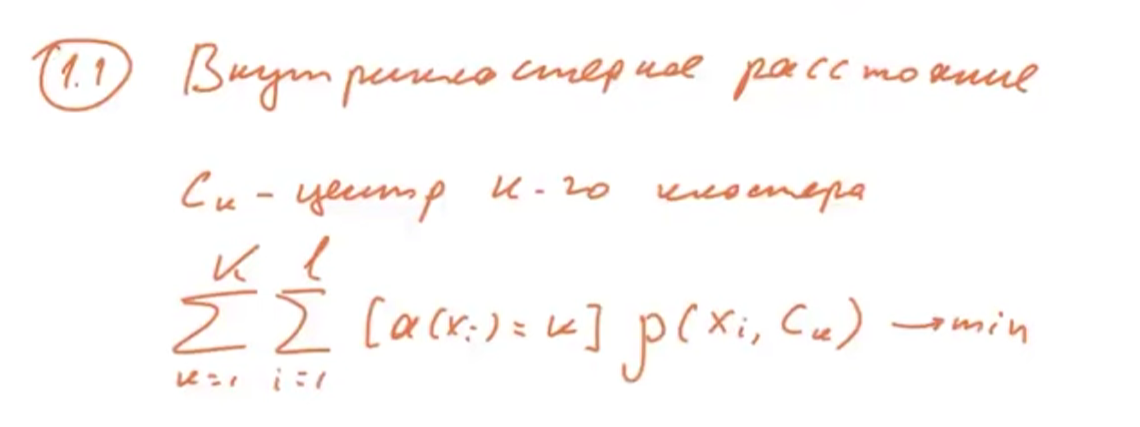 1.1 Внутрикластерное расстояние
Cк - центр к-го кластера
∑_{k=1}^{K} ∑_{i=1}^{l} [a(xᵢ) = k] ρ(xᵢ, cₖ) → min